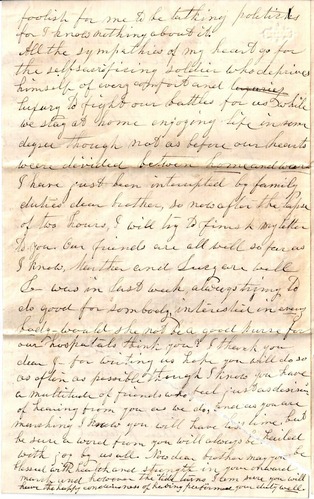 foolish for me to be talking politicks
for I know nothing about it.
All the sympathies of my heart go for
the self sacrificing soldier who deprives
himself of every comfort and
luxury to fight our battles for us while
we stay at home enjoying life in some
degree though not as before our hearts
were divided between home and war
I have just been interupted by family
duties dear brother, so now after the lapse
of two hours, I will try to finish my letter
to you. Our friends are all well so far as
I know, Mother and Lucy are well
L— was in last week always trying to
do good for somebody, interested in every
body— would she not be a good nurse for
our hospitals think you? I thank you
dear J— for writing us hope you will do so
as often as possible though I know you have
a multitude of friends who feel just as desirous
of hearing from you as we do, and as you are
marching I know you will have less time, but
be sure a word from you will always be hailed
with joy by us all. Now dear brother may you be
blessed with health and strength in your onward
march and however the tide turns I am sure you will
have the happy conciousness of having performed your duty well.